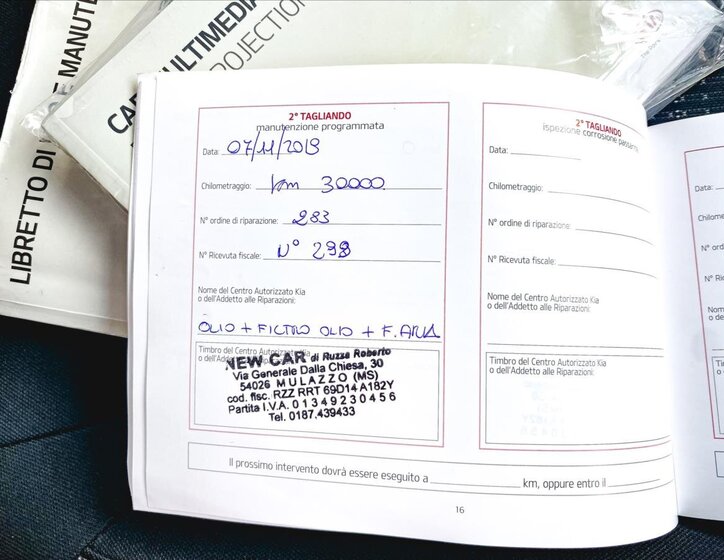 LIBRETTO DI
E MANUTE
CAR MULTIMEDIA
PROJECTION
2° TAGLIANDO
manutenzione programmata
Data: 07/11/2019
Chilometraggio: km 30000
N° ordine di riparazione: 283
N° Ricevuta fiscale: N° 298
Nome del Centro Autorizzato Kia
o dell'Addetto alle Riparazioni:
OLIO + FILTRO OLIO + F. ARIA
Timbro del Centro Autorizzato Kia
o dell'Addetto alle Riparazioni:
NEW CAR di Ruzza Roberto
Via Generale Dalla Chiesa, 30
54026 MULAZZO (MS)
cod. fisc. RZZ RRT 69D14 A182Y
Partita I.V.A. 01349230456
Tel. 0187.439433
2° TAGLIANDO
ispezione corrosione passante
Data:
Chilometraggio:
N° ordine di riparazione:
N° Ricevuta fiscale:
Nome del Centro Autorizzato Kia
o dell'Addetto alle Riparazioni:
Timbro del Centro Autorizzato Kia
o dell'Addetto alle Riparazioni:
Il prossimo intervento dovrà essere eseguito a km, oppure entro il
16
Data:
Chilome
N° ord
N° Ri
Nom
o de
Tim
o d